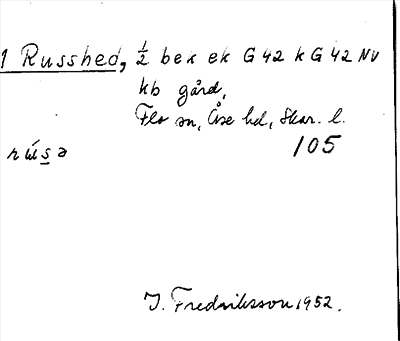 1 Russhed, ½ bek ek G 42 k G 42 NV
kb gård,
Flo sn, Åse hd, Skar. l.
rúsə 105
I. Fredriksson 1952.